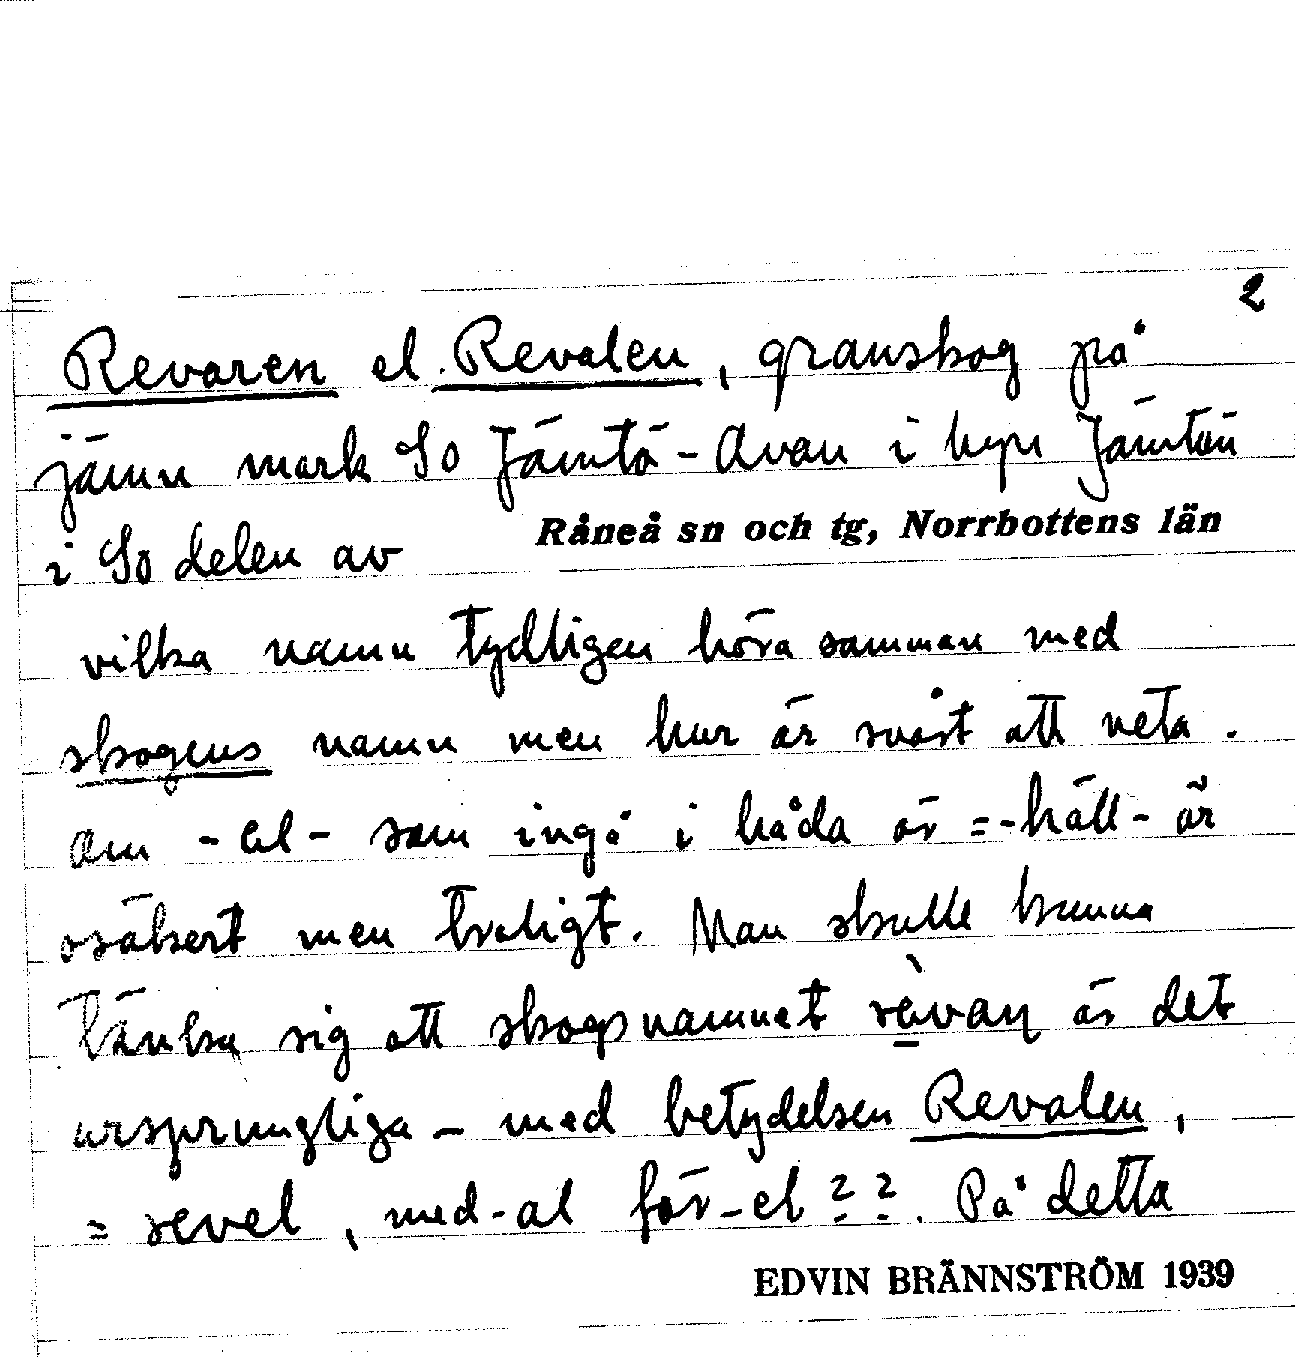 2
Revaren el. Revalen, granskog på
jämn mark So Jämtö-Avan i byn Jämtön
i So delen av Råneå sn och tg, Norrbottens län
vilka namn tydligen höra samman med
skogens namn men hur är svårt att veta.
Om -el- som ingå i båda är =-häll- är
osäkert men troligt. Man skulle kunna
tänka sig att skogsnamnet
är det
ursprungliga - med betydelsen Revalen,
= revel, med -al för -el??. På detta
EDVIN BRÄNNSTRÖM 1939